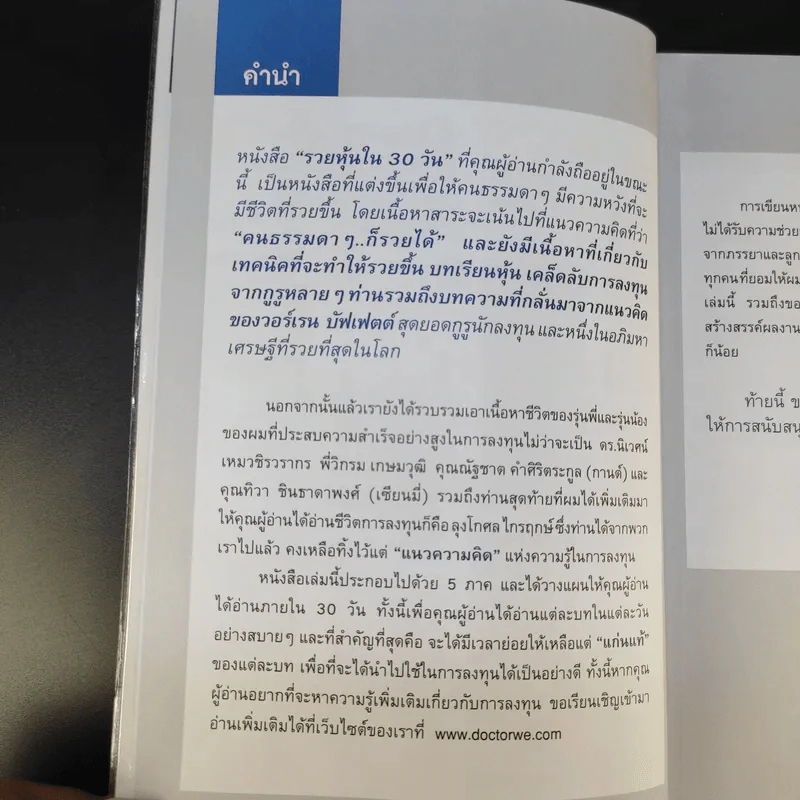 คำนำ
หนังสือ “รวยหุ้นใน 30 วัน” ที่คุณผู้อ่านกำลังถืออยู่ในขณะ
นี้ เป็นหนังสือที่แต่งขึ้นเพื่อให้คนธรรมดาๆ มีความหวังที่จะ
มีชีวิตที่รวยขึ้น โดยเนื้อหาสาระจะเน้นไปที่แนวความคิดที่ว่า
“คนธรรมดาๆ..ก็รวยได้” และยังมีเนื้อหาที่เกี่ยวกับ
เทคนิคที่จะทำให้รวยขึ้น บทเรียนหุ้น เคล็ดลับการลงทุน
จากกูรูหลายๆ ท่านรวมถึงบทความที่กลั่นมาจากแนวคิด
ของวอร์เรน บัฟเฟตต์ สุดยอดกูรูนักลงทุน และหนึ่งในอภิมหา
เศรษฐีที่รวยที่สุดในโลก
นอกจากนั้นแล้วเรายังได้รวบรวมเอาเนื้อหาชีวิตของรุ่นพี่และรุ่นน้อง
ของผมที่ประสบความสำเร็จอย่างสูงในการลงทุนไม่ว่าจะเป็น ดร.นิเวศน์
เหมวชิรวรากร พี่วิกรม เกษมวุฒิ คุณณัฐชาต คำศิริตระกูล (กานต์) และ
คุณทิวา ชินธาดาพงศ์ (เซียนมี่) รวมถึงท่านสุดท้ายที่ผมได้เพิ่มเติมมา
ให้คุณผู้อ่านได้อ่านชีวิตการลงทุนก็คือ ลุงโกศล ไกรฤกษ์ ซึ่งท่านได้จากพวก
เราไปแล้ว คงเหลือทิ้งไว้แต่ “แนวความคิด” แห่งความรู้ในการลงทุน
หนังสือเล่มนี้ประกอบไปด้วย 5 ภาค และได้วางแผนให้คุณผู้อ่าน
ได้อ่านภายใน 30 วัน ทั้งนี้เพื่อคุณผู้อ่านได้อ่านแต่ละบทในแต่ละวัน
อย่างสบายๆ และที่สำคัญที่สุดคือ จะได้มีเวลาย่อยให้เหลือแต่ “แก่นแท้”
ของแต่ละบท เพื่อที่จะได้นำไปใช้ในการลงทุนได้เป็นอย่างดี ทั้งนี้หากคุณ
ผู้อ่านอยากที่จะหาความรู้เพิ่มเติมเกี่ยวกับการลงทุน ขอเรียนเชิญเข้ามา
อ่านเพิ่มเติมได้ที่เว็บไซต์ของเราที่ www.doctorwe.com
การเขียนห
ไม่ได้รับความช่วย
จากภรรยาและลูก
ทุกคนที่ยอมให้ผม
เล่มนี้ รวมถึงขอ
สร้างสรรค์ผลงาน
ก็น้อย
ท้ายนี้ ข
ให้การสนับสนุ